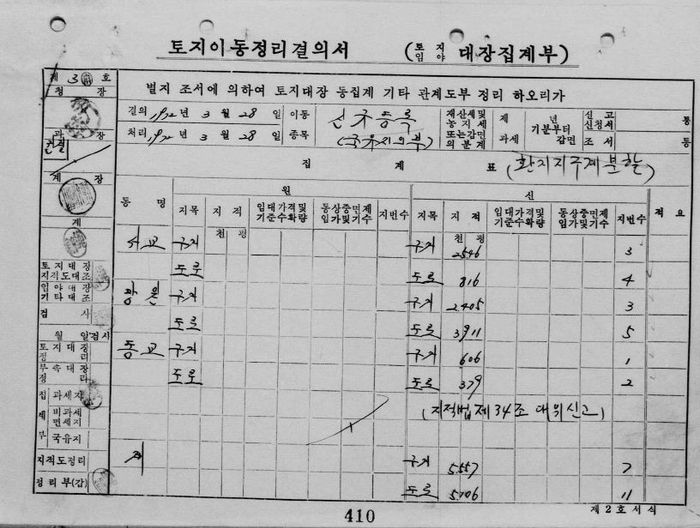 토지이동정리결의서 (토지 임야 대장집계부)
제 3 호
청 장
별지 조서에 의하여 토지대장 동집계 기타 관계도부 정리 하오리가
결의 1972년 3 월 28 일 이동 신규등록 재산세및 농지세 또는감면 의분계 제 년 기분부터 과세 감면 신고 신청서 통
처리 1972년 3 월 28 일 종목 조서 통
과 장
집 계 표 (환지지구계분할)
계 장
동 명 원 신 적 요
지목 지 적 임대가격및 기준수확량 동상중면제 임가및기수 지번수 지목 지 적 임대가격및 기준수확량 동상중면제 임가및기수 지번수
계
천 평 천 평
서교 구거 구거 2546 3
토지대장 지적도대조 도로 도로 816 4
임야대장 기타대조 구거 구거 2405 3
검 사 도로 도로 3911 5
월 일검사
토지대장 정리 동교 구거 구거 606 1
부속대장 정리 도로 도로 379 2
집 계 부 과세지
(지적법제34조 대위신고)
비과세 면세지
국유지
지적도정리 계 구거 5557 7
정리부(갑) 도로 5106 11
410
제2호서식